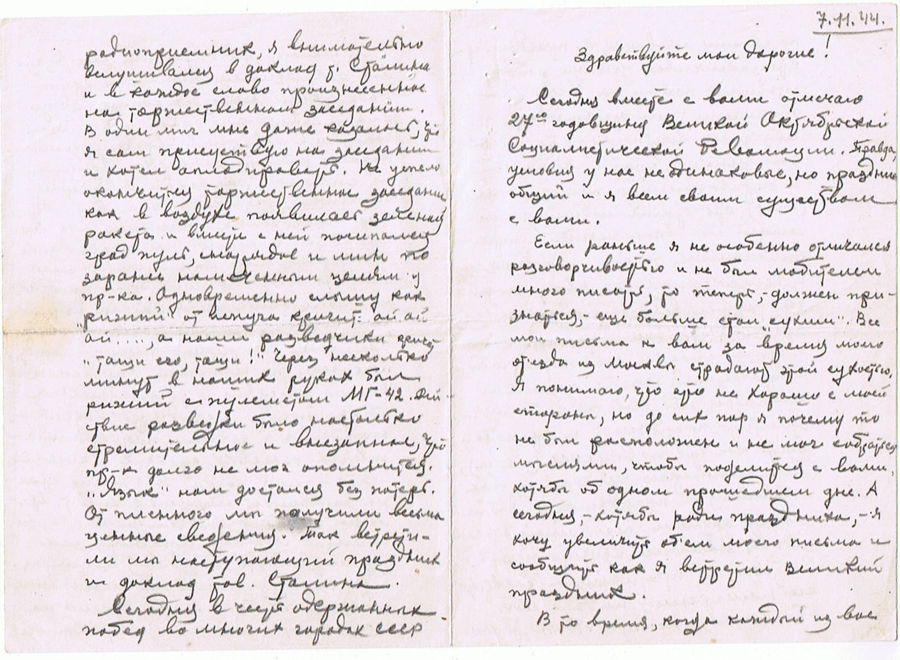 7.11.44.
Здравствуйте мои дорогие!
Сегодня вместе с вами отмечаю
27ую годовщину Великой Октябрьской
Социалистической Революции. Правда,
условия у нас не одинаковые, но праздник
общий и я всем своим существом
с вами.
Если раньше я не особенно отличался
разговорчивостью и не был любителем
много писать, то теперь, - должен при-
знаться, - еще больше стал "сухим". Все
мои письма к вам за время моего
отъезда из Москвы страдают этой сухостью.
Я понимаю, что это не хорошо с моей
стороны, но до сих пор я почему то
не был расположен и не мог собраться
мыслями, чтобы поделиться с вами,
хотябы об одном прошедшем дне. А
сегодня, - хотябы ради праздника, - я
хочу увеличить обем моего письма и
сообщить как я встретил великий
праздник.
В то время, когда каждый из вас
радиоприемник, я внимательно
вслушивался в доклад т. Сталина
и в каждое слово произнесенное
на торжественном заседании.
В один миг мне даже казалось, что
я сам присутствую на заседании
и хотел аплодировать. Не успело
окончиться торжественное заседание
как в воздухе появилась зеленая
ракета и вместе с ней посыпался
град пуль, снарядов и мин по
заранее намеченным целям у
пр-ка. Одновременно слышу как
"рыжий" от испуга кричит: ай ай
ай....., а наши разведчики кричат
"тащи его, тащи!" Через несколько
минут в наших руках был
рыжий с пулеметом МГ-42. Дей-
ствие разведки было настолько
стремительное и внезапное, что
пр-к долго не мог опомниться.
"Язык" нам достался без потерь.
От пленного мы получили весьма
ценные сведения. Так встрети-
ли мы наступающий праздник
и доклад тов. Сталина.
Сегодня в честь одержанных
побед во многих городах СССР